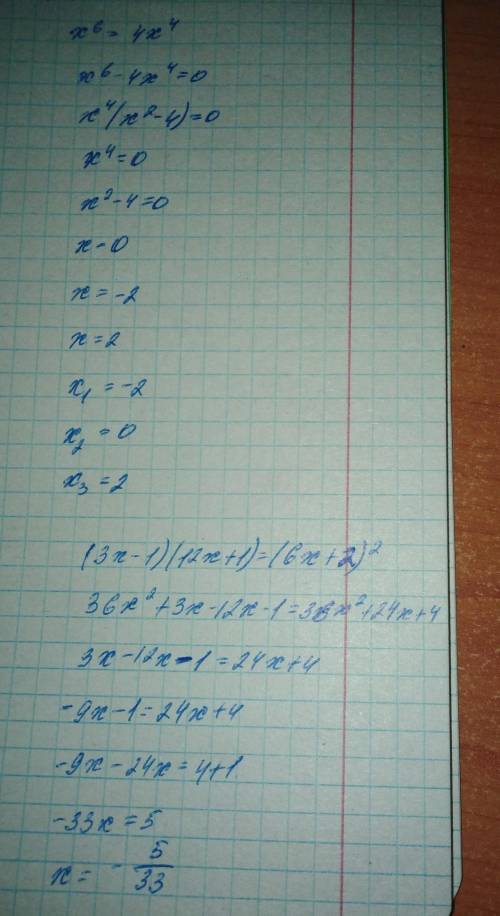 x⁶ = 4x⁴
x⁶ - 4x⁴ = 0
x⁴(x² - 4) = 0
x⁴ = 0
x² - 4 = 0
x - 0
x = -2
x = 2
x₁ = -2
x₂ = 0
x₃ = 2
(3x - 1)(12x + 1) = (6x + 2)²
36x² + 3x - 12x - 1 = 36x² + 24x + 4
3x - 12x - 1 = 24x + 4
-9x - 1 = 24x + 4
-9x - 24x = 4 + 1
-33x = 5
x = - 5/33